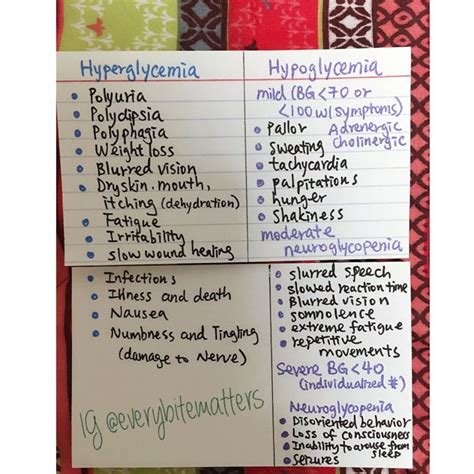 Hyperglycemia
• Polyuria
• Polydipsia
• Polyphagia
• Weight loss
• Blurred vision
• Dry skin. mouth,
itching (dehydration)
• Fatigue
• Irritability
• slow wound healing
• Infections
• Illness and death
• Nausea
• Numbness and Tingling
(damage to Nerve)
IG @everybitematters
Hypoglycemia
mild (BG<70 or
<100 w/ symptoms)
• Pallor Adrenergic
• Sweating cholinergic
• tachycardia
• palpitations
• hunger
• Shakiness
moderate
neuroglycopenia
• slurred speech
• slowed reaction time
• Blurred vision
• somnolence
• extreme fatigue
• repetitive
movements
Severe BG<40
(individualized #)
Neuroglycopenia
• Disoriented behavior
• Loss of consciousness
• Inability to arouse from
sleep
• seizures